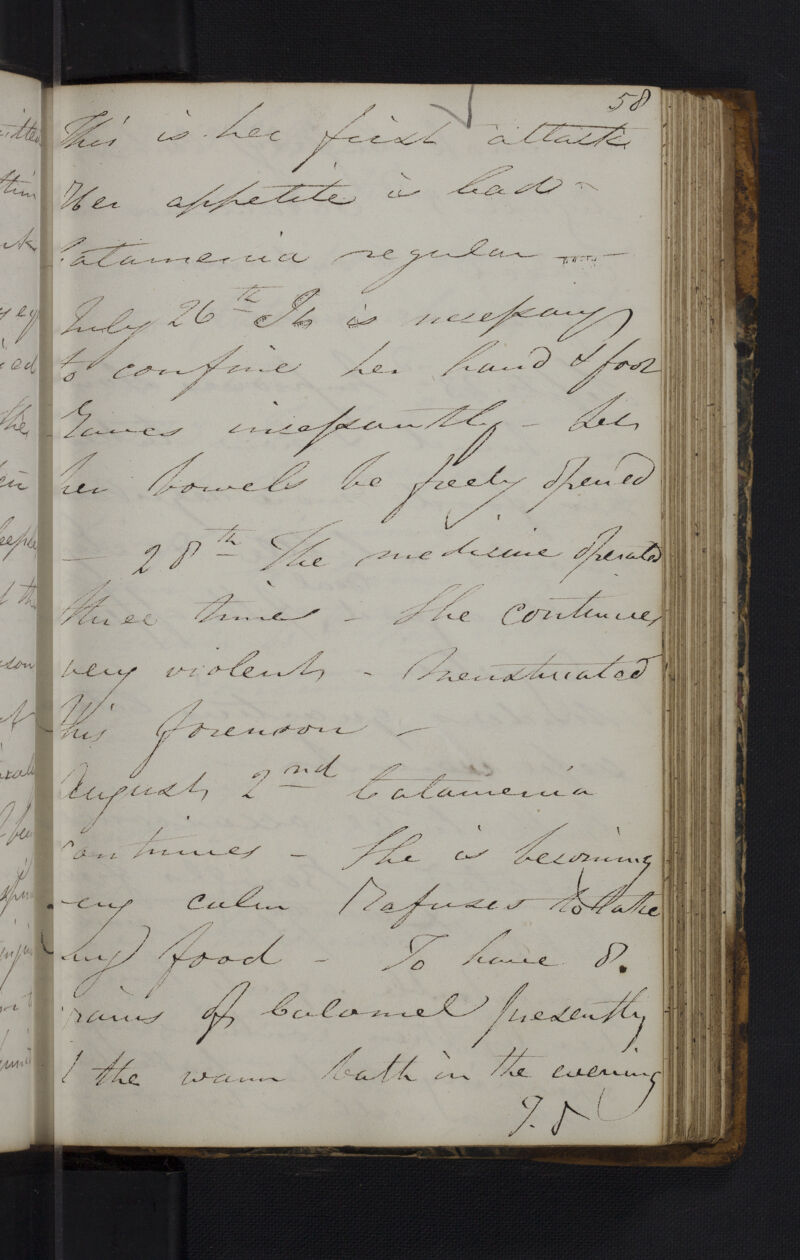 58
This is her first attack
Her appetite is bad -
Catamenia regular -
July 26th It is necessary
to confine her hand & foot
Raves incessantly - Let
her bowels be freely opened
- 28th The medicine operated
three times - She continues
very violent - Menstruated
this forenoon -
August 2nd Catamenia
continues - She is becoming
very calm Refuses to take
any food - To have 8.
grains of Calomel presently
& the warm bath in the evening